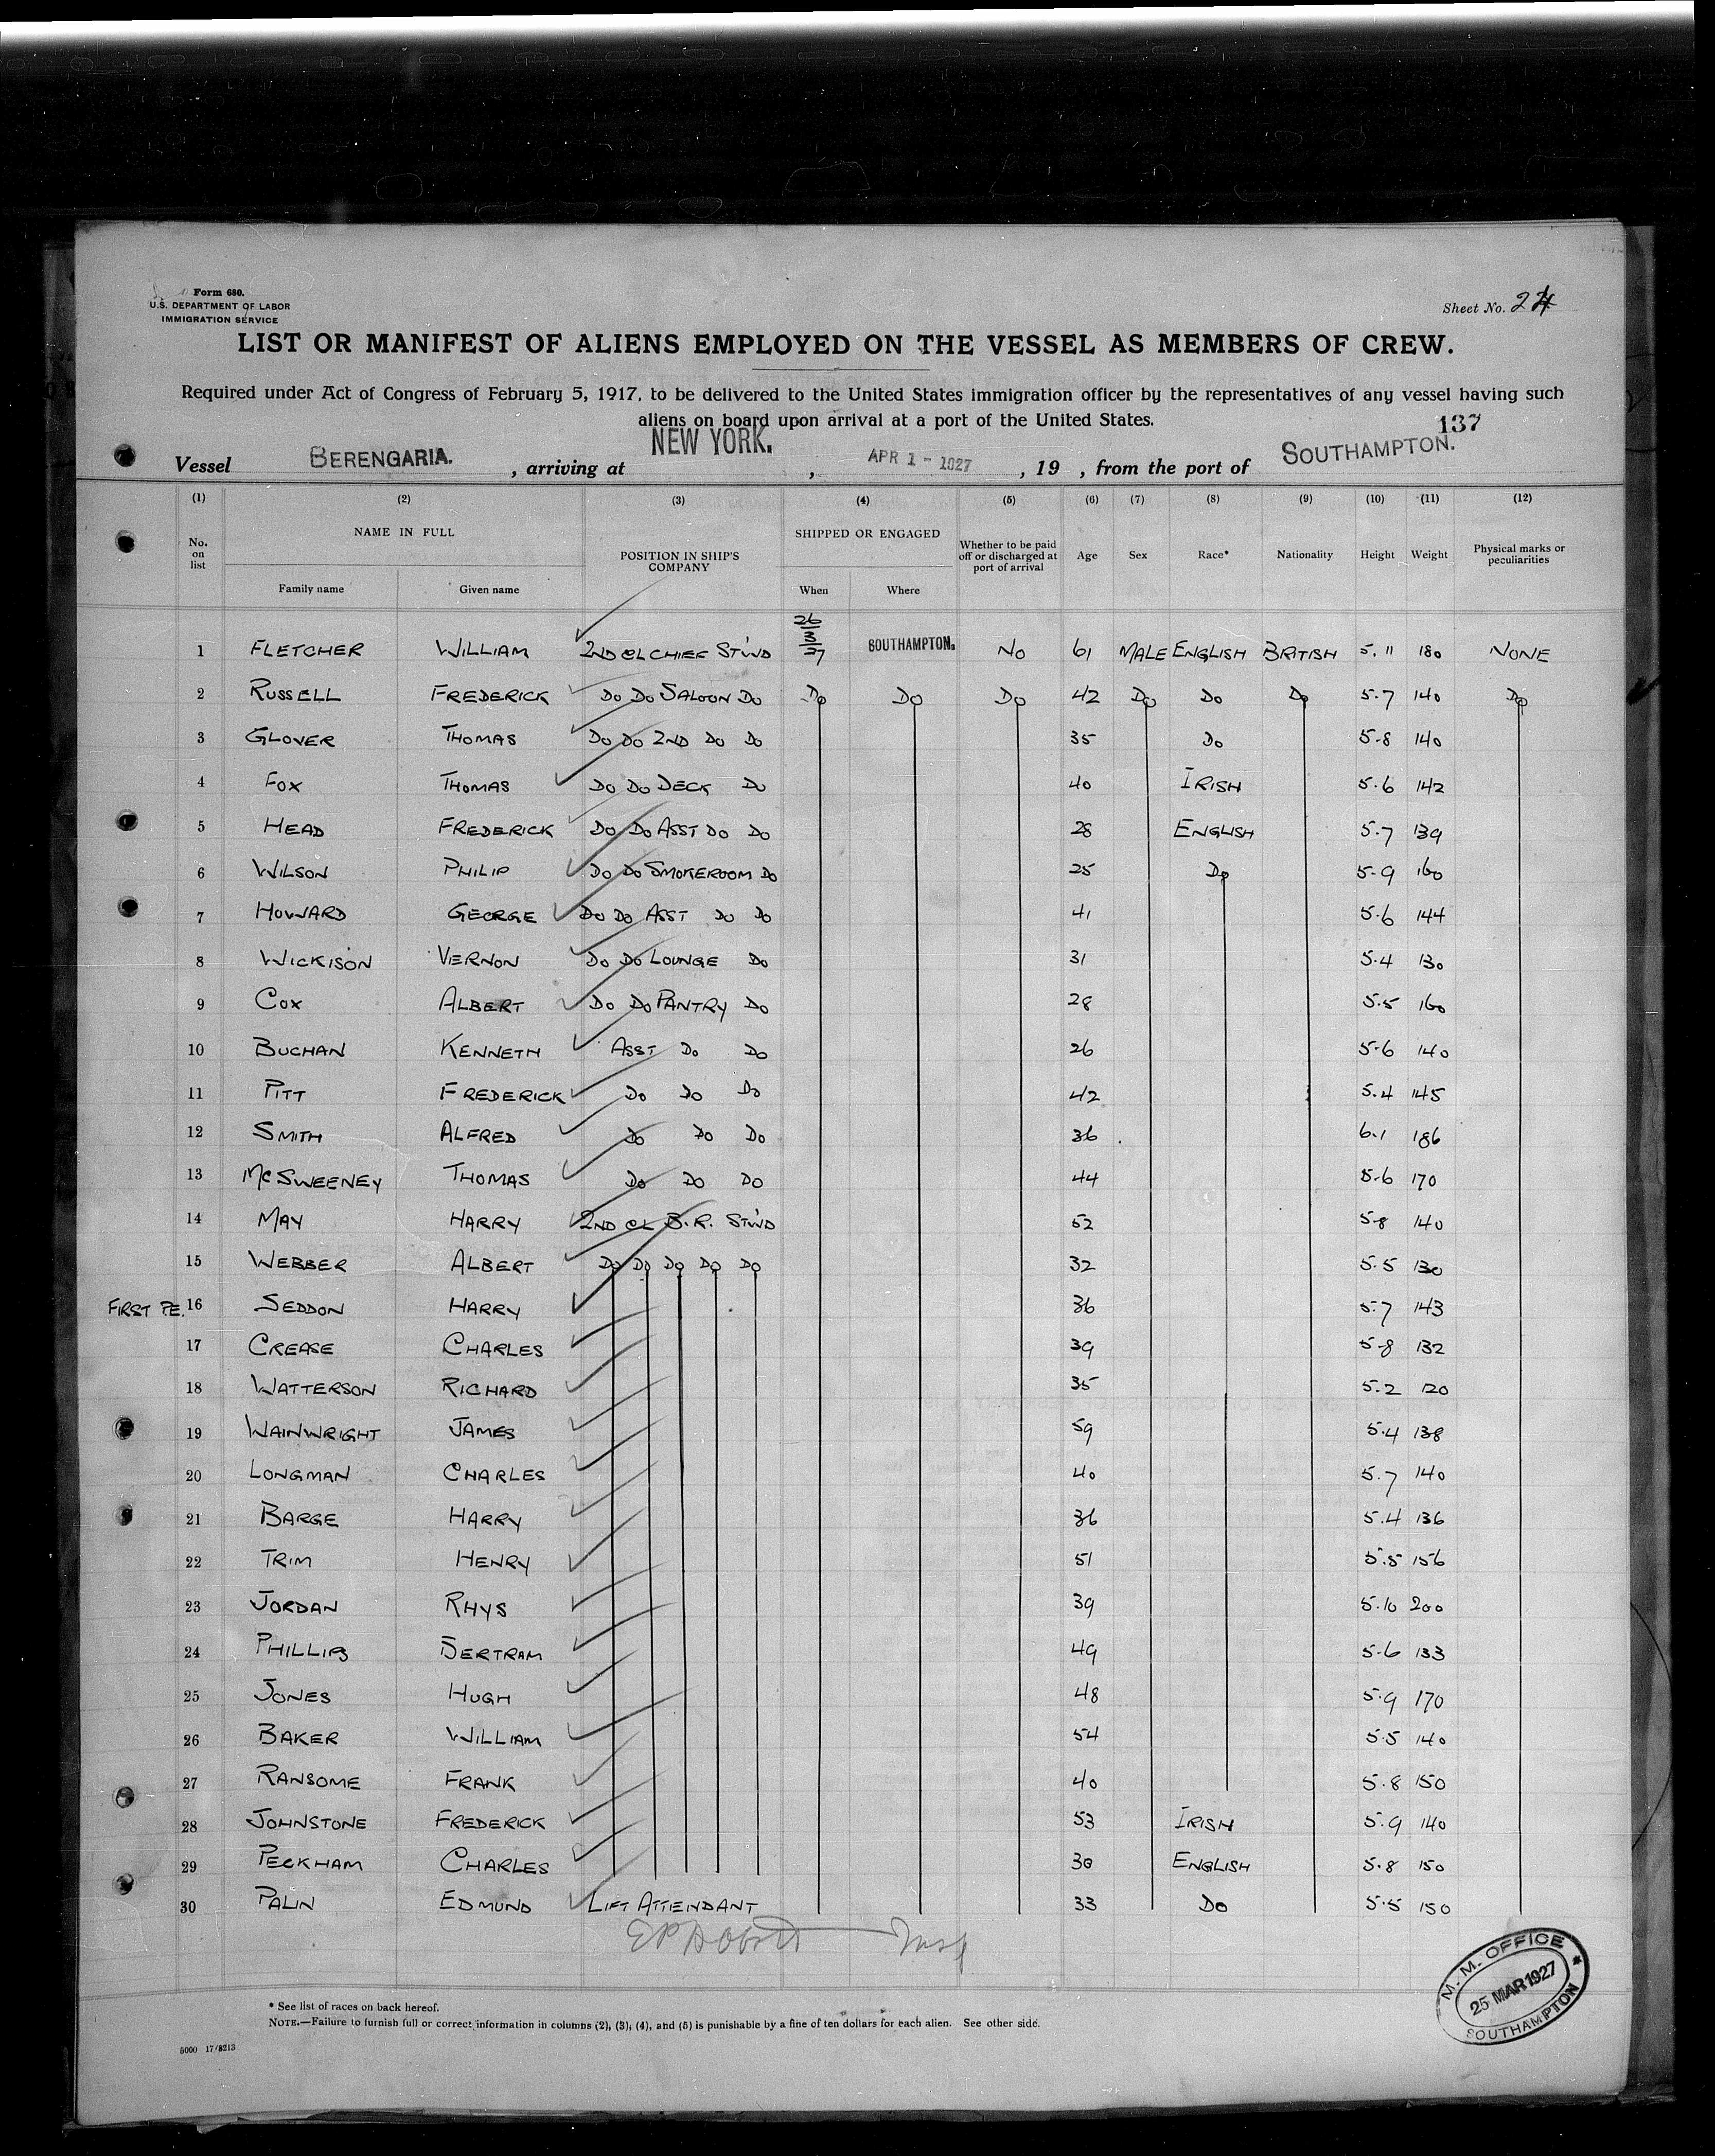 Form 680.
U.S. DEPARTMENT OF LABOR
IMMIGRATION SERVICE
Sheet No. 24
LIST OR MANIFEST OF ALIENS EMPLOYED ON THE VESSEL AS MEMBERS OF CREW.
Required under Act of Congress of February 5, 1917, to be delivered to the United States immigration officer by the representatives of any vessel having such
aliens on board upon arrival at a port of the United States.
137
Vessel BERENGARIA. , arriving at NEW YORK. , APR 1 - 1927 , 19 , from the port of SOUTHAMPTON.
(1) (2) (3) (4) (5) (6) (7) (8) (9) (10) (11) (12)
No. on list NAME IN FULL POSITION IN SHIP'S COMPANY SHIPPED OR ENGAGED Whether to be paid off or discharged at port of arrival Age Sex Race* Nationality Height Weight Physical marks or peculiarities
Family name Given name When Where
1 FLETCHER WILLIAM 2ND CL CHIEF ST'WD 26/3/27 SOUTHAMPTON. NO 61 MALE ENGLISH BRITISH 5.11 180 NONE
2 RUSSELL FREDERICK DO DO SALOON DO DO DO DO 42 DO DO DO 5.7 140 DO
3 GLOVER THOMAS DO DO 2ND DO DO 35 DO 5.8 140
4 FOX THOMAS DO DO DECK DO 40 IRISH 5.6 142
5 HEAD FREDERICK DO DO ASST DO DO 28 ENGLISH 5.7 139
6 WILSON PHILIP DO DO SMOKEROOM DO 25 DO 5.9 160
7 HOWARD GEORGE DO DO ASST DO DO 41 5.6 144
8 WICKISON VERNON DO DO LOUNGE DO 31 5.4 130
9 COX ALBERT DO DO PANTRY DO 28 5.5 160
10 BUCHAN KENNETH ASST DO DO 26 5.6 140
11 PITT FREDERICK DO DO DO 42 5.4 145
12 SMITH ALFRED DO DO DO 36 6.1 186
13 McSWEENEY THOMAS DO DO DO 44 5.6 170
14 MAY HARRY 2ND CL B.R. ST'WD 52 5.8 140
15 WEBBER ALBERT DO DO DO DO DO 32 5.5 130
FIRST P.E. 16 SEDDON HARRY 36 5.7 143
17 CREASE CHARLES 39 5.8 132
18 WATTERSON RICHARD 35 5.2 120
19 WAINWRIGHT JAMES 59 5.4 138
20 LONGMAN CHARLES 40 5.7 140
21 BARGE HARRY 36 5.4 136
22 TRIM HENRY 51 5.5 156
23 JORDAN RHYS 39 5.10 200
24 PHILLIPS BERTRAM 49 5.6 133
25 JONES HUGH 48 5.9 170
26 BAKER WILLIAM 54 5.5 140
27 RANSOME FRANK 40 5.8 150
28 JOHNSTONE FREDERICK 53 IRISH 5.9 140
29 PECKHAM CHARLES 30 ENGLISH 5.8 150
30 PALIN EDMUND LIFT ATTENDANT 33 DO 5.5 150
M. M. OFFICE
25 MAR 1927
SOUTHAMPTON
* See list of races on back hereof.
NOTE.—Failure to furnish full or correct information in columns (2), (3), (4), and (5) is punishable by a fine of ten dollars for each alien. See other side.
5000 17/8213